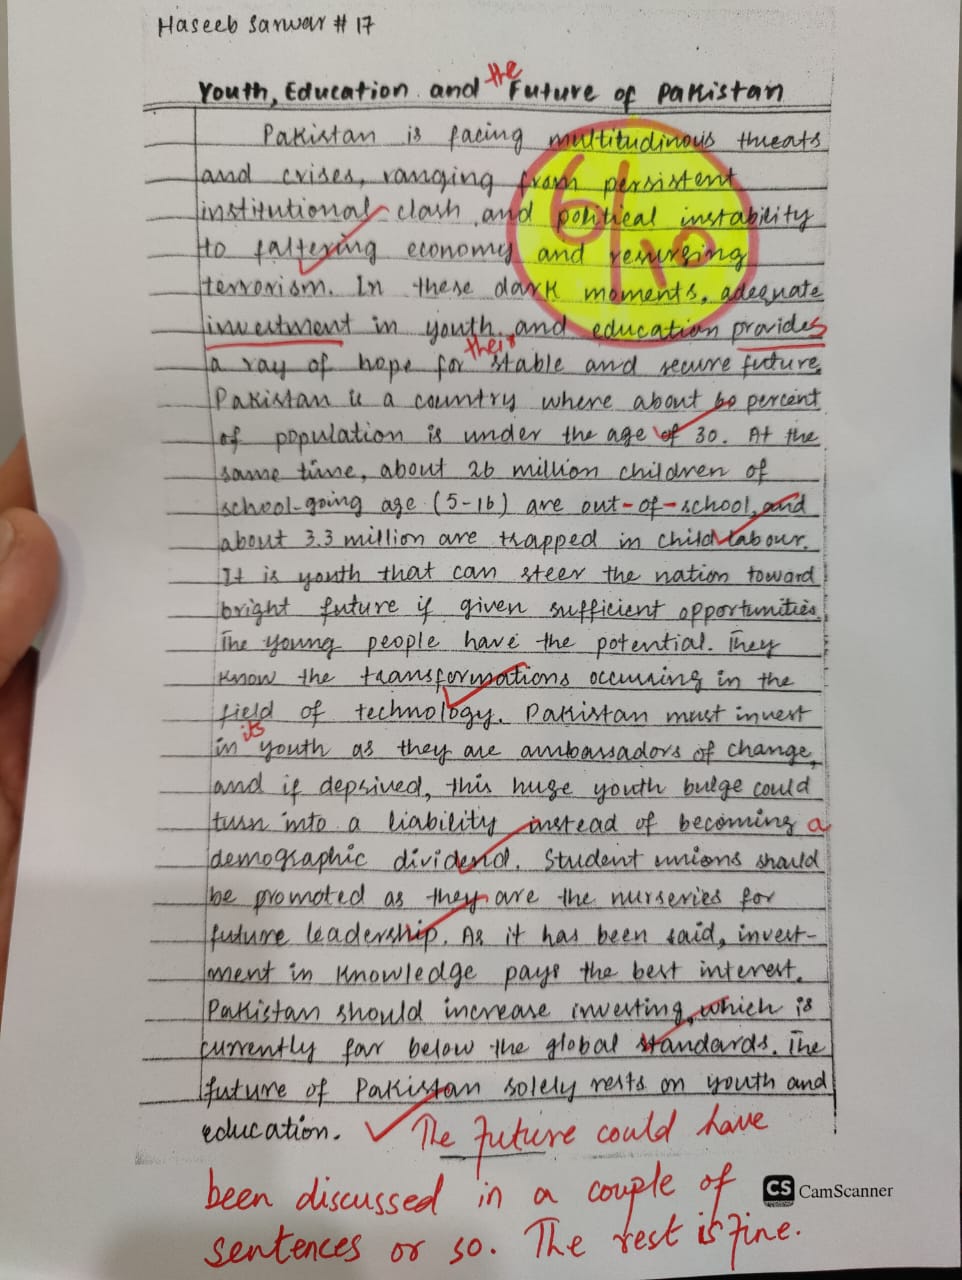 Haseeb Sarwar # 17
the
Youth, Education and Future of Pakistan
Pakistan is facing multitudinous threats
and crises, ranging from persistent
institutional clash and political instability
to faltering economy and resurging
terrorism. In these dark moments, adequate
investment in youth and education provides
their
a ray of hope for stable and secure future.
Pakistan is a country where about 60 percent
of population is under the age of 30. At the
same time, about 26 million children of
school-going age (5-16) are out-of-school, and
about 3.3 million are trapped in child labour.
It is youth that can steer the nation toward
bright future if given sufficient opportunities.
The young people have the potential. They
know the transformations occurring in the
field of technology. Pakistan must invest
its
in youth as they are ambassadors of change,
and if deprived, this huge youth bulge could
turn into a liability instead of becoming a
demographic dividend. Student unions should
be promoted as they are the nurseries for
future leadership. As it has been said, invest-
ment in knowledge pays the best interest.
Pakistan should increase investing, which is
currently far below the global standards. The
future of Pakistan solely rests on youth and
education. The future could have
been discussed in a couple of
sentences or so. The rest is fine.
6/10
CS CamScanner